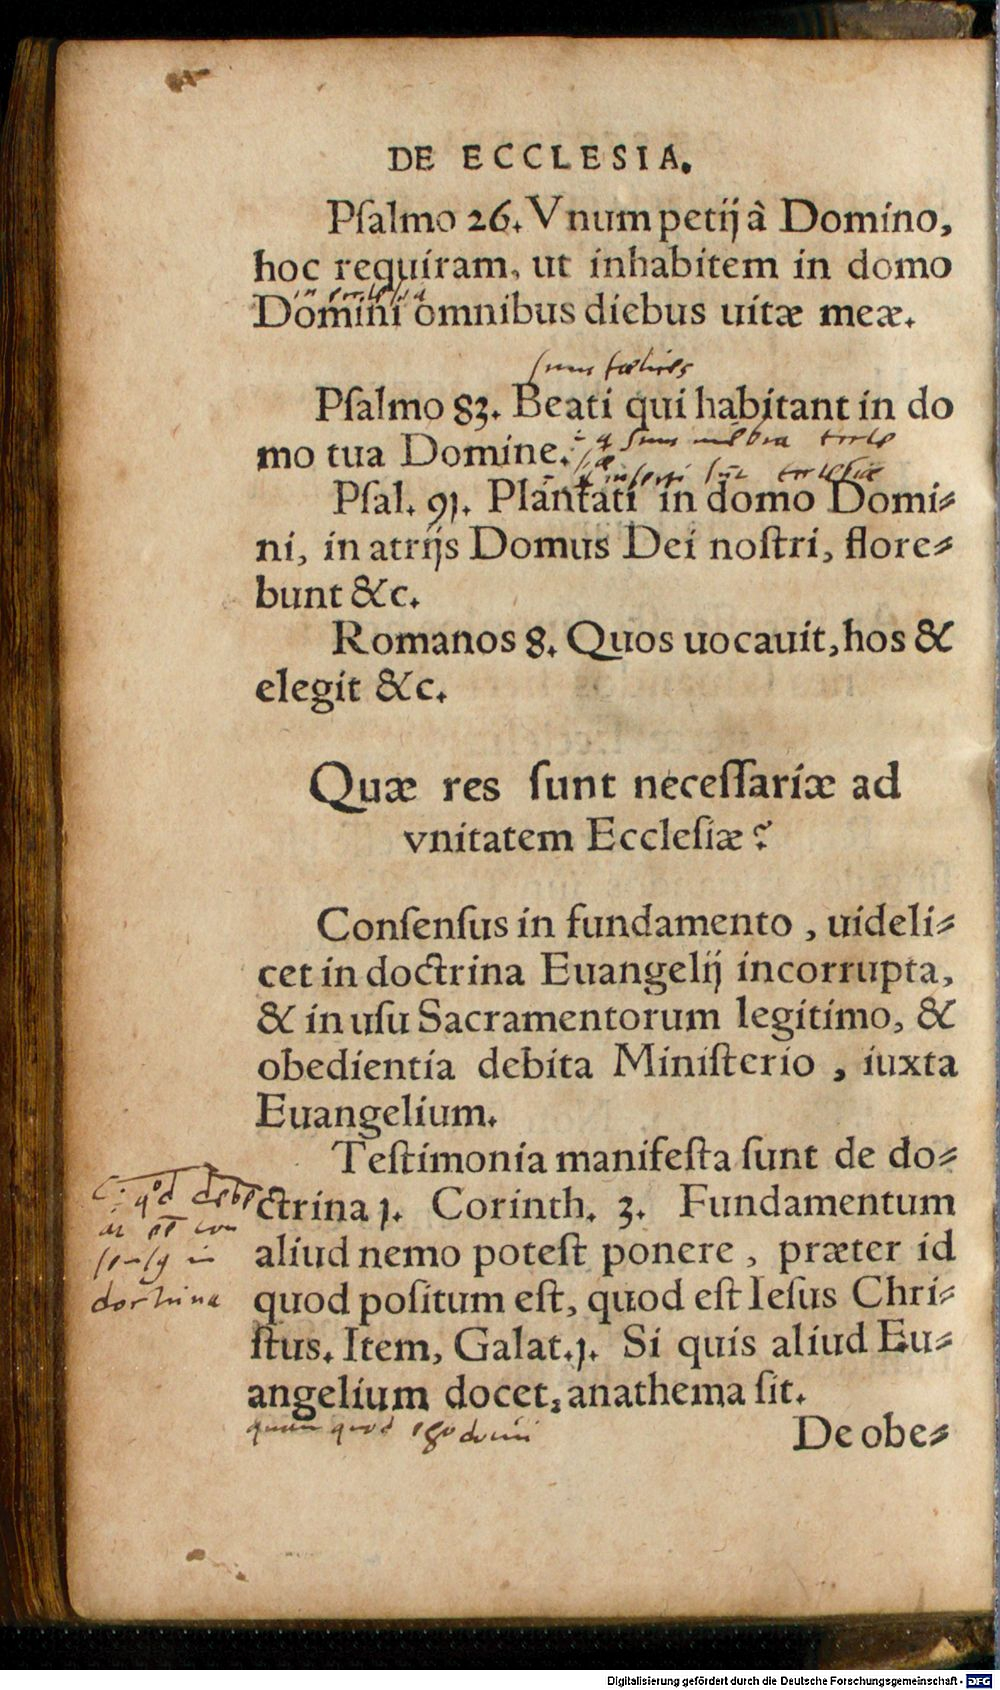 DE ECCLESIA.
Pſalmo 26. Vnum petij à Domino,
hoc requiram, ut inhabitem in domo
in eccleſia
Domini omnibus diebus uitæ meæ.
ſunt fœlices
Pſalmo 83. Beati qui habitant in do
mo tua Domine.
q ſunt mēbra eccle
ſiæ
inſerti ecclesiæ
Pſal. 91. Plantati in domo Domi⸗
ni, in atrijs Domus Dei noſtri, flore⸗
bunt &c.
Romanos 8. Quos uocauit, hos &
elegit &c.
Quæ res ſunt neceſſariæ ad
vnitatem Eccleſiæ?
Conſenſus in fundamento, uideli⸗
cet in doctrina Euangelij incorrupta,
& in uſu Sacramentorum legitimo, &
obedientia debita Miniſterio, iuxta
Euangelium.
Teſtimonia manifeſta ſunt de do⸗
ctrina 1. Corinth. 3. Fundamentum
aliud nemo poteſt ponere, præter id
quod poſitum eſt, quod eſt Ieſus Chri⸗
ſtus. Item, Galat. 1. Si quis aliud Eu⸗
angelium docet, anathema ſit.
quam quod ego docui
De obe⸗
qd debe
at eē con
ſenſ9 in
doctrina
Digitalisierung gefördert durch die Deutsche Forschungsgemeinschaft - DFG